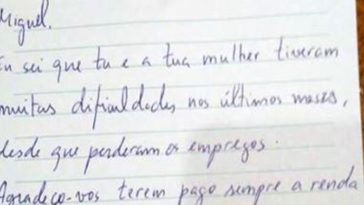 Miguel.
Eu sei que tu e a tua mulher tiveram
muitas dificuldades nos últimos meses,
desde que perderam os empregos.
Agradeço-vos terem pago sempre a renda